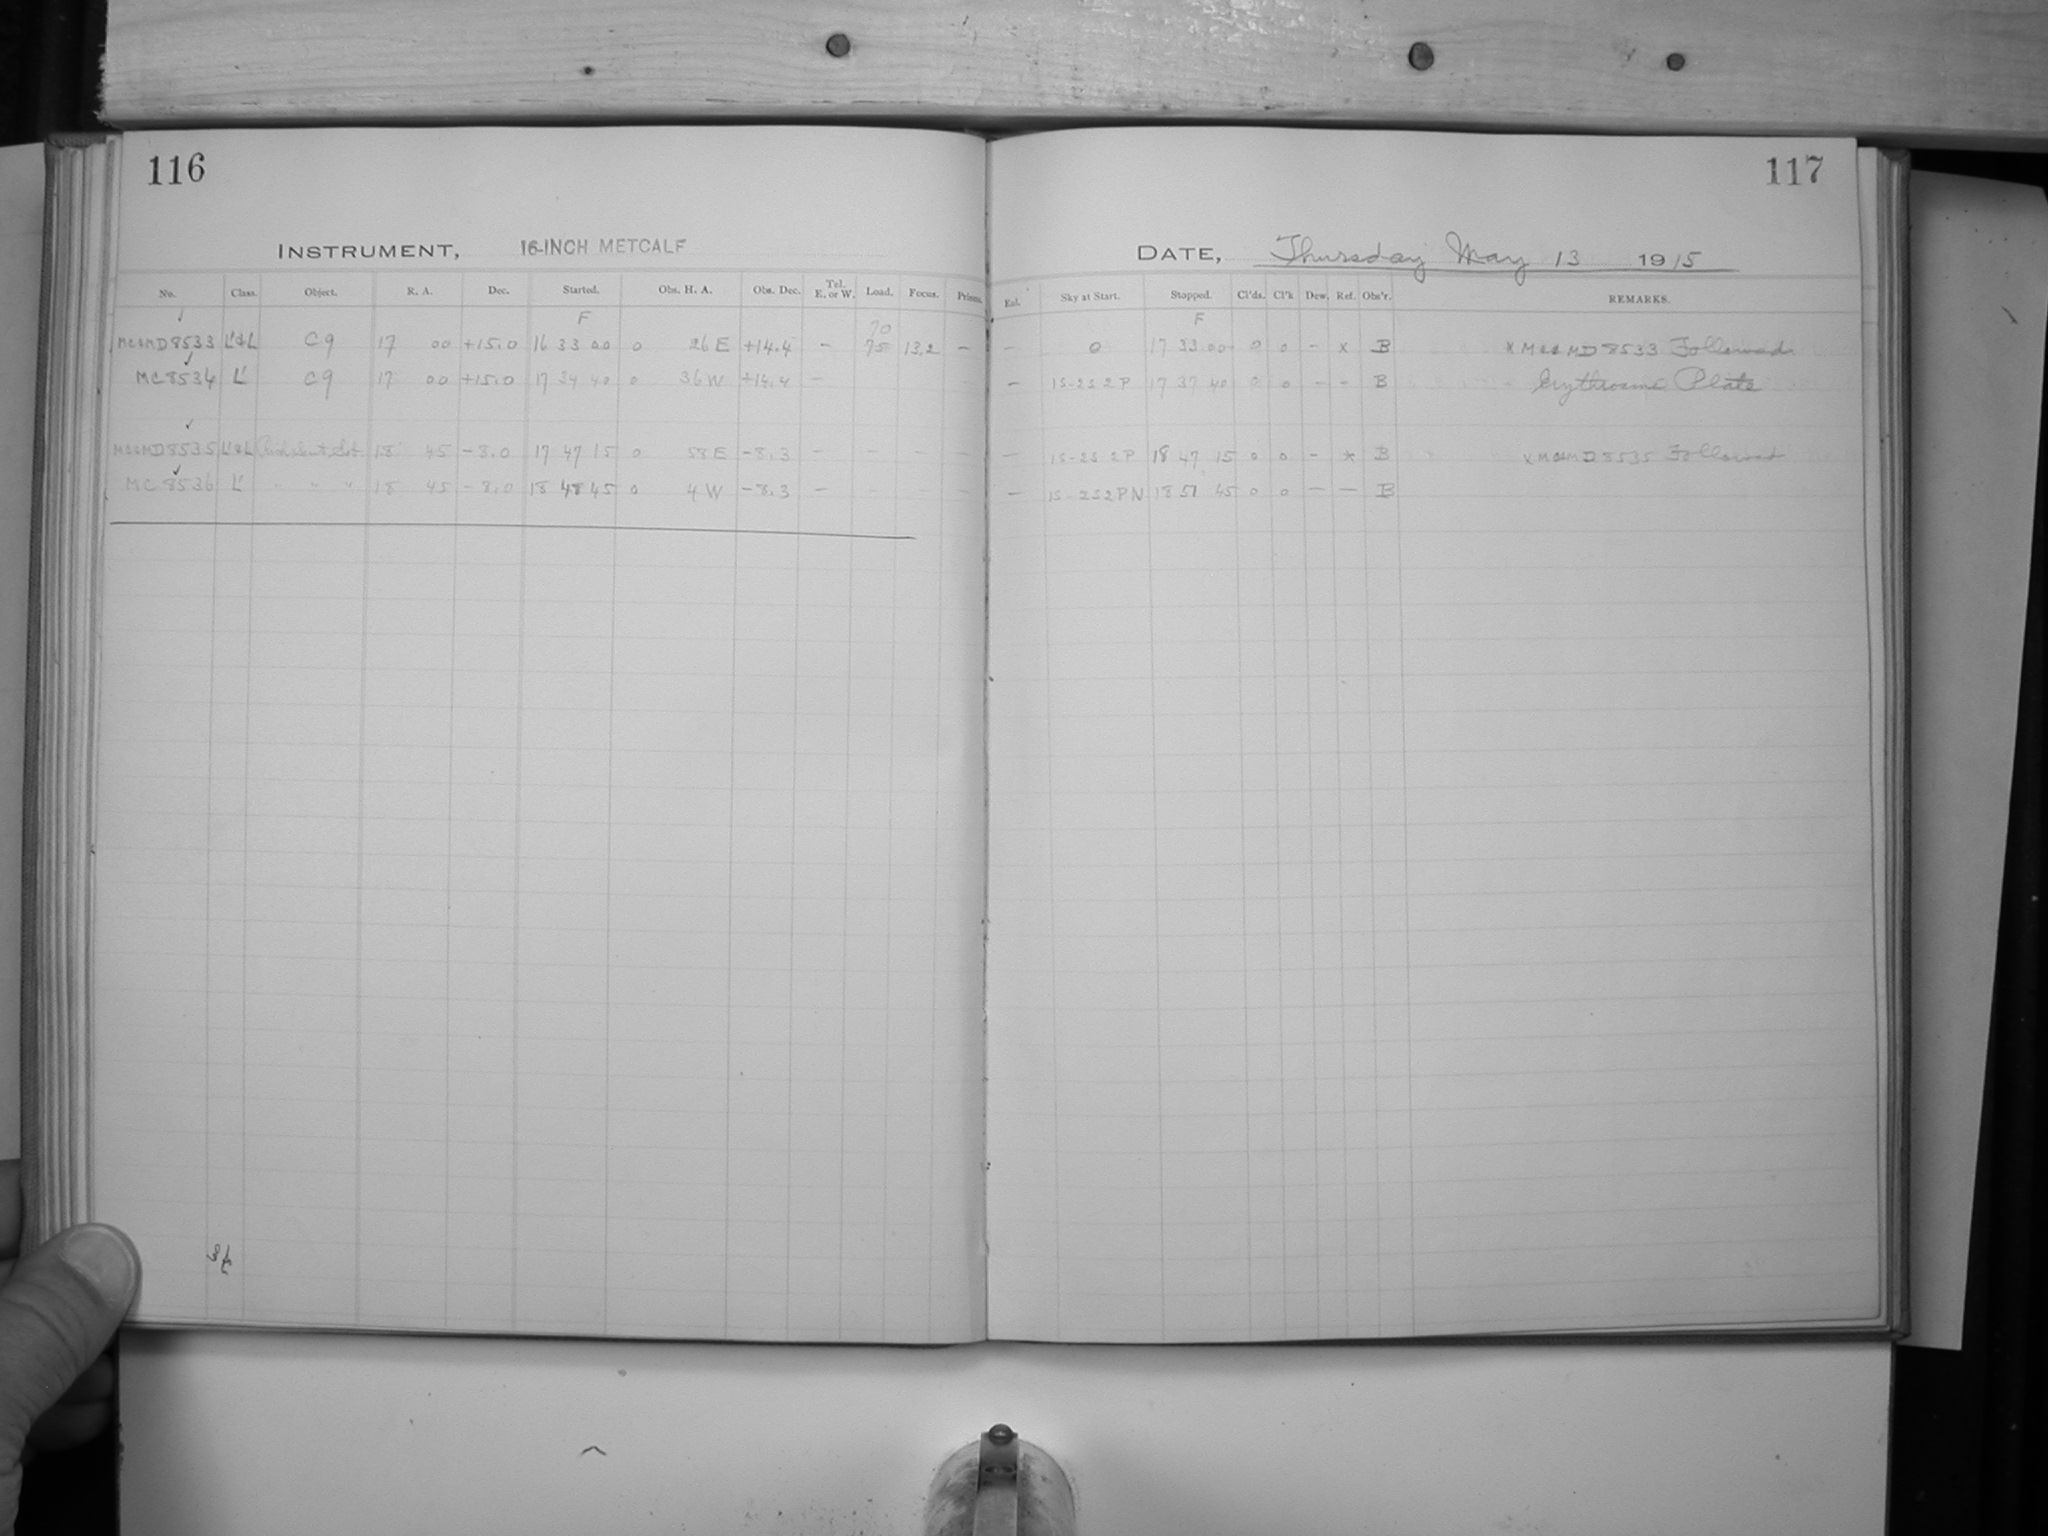 116
INSTRUMENT, 16-INCH METCALF
No. Class. Object. R. A. Dec. Started. Obs. H. A. Obs. Dec. Tel. E. or W. Load. Focus. Prism.
F
70
MC&MD8533 L'&L C9 17 00 +15.0 16 33 00 0 26 E +14.4 - 75 13.2 -
MC8534 L' C9 17 00 +15.0 17 34 40 0 36 W +14.4 -
MC&MD8535 L'&L 18 45 -8.0 17 47 15 0 58 E -8.3 - - - -
MC8536 L' " " " 18 45 -8.0 18 48 45 0 4 W -8.3 - - - -
117
DATE, Thursday May 13 1915
Enl. Sky at Start. Stopped. Cl'ds. Cl'k Dew. Ref. Obs'r. REMARKS.
F
- 0 17 33 00 0 0 - x B x MC&MD 8533 Followed
- 1S-2S 2P 17 37 40 0 0 - - B Erythrosine Plate
- 1S-2S 2P 18 47 15 0 0 - * B x MC&MD 8535 Followed
- 1S-2S2PN 18 51 45 0 0 - - B